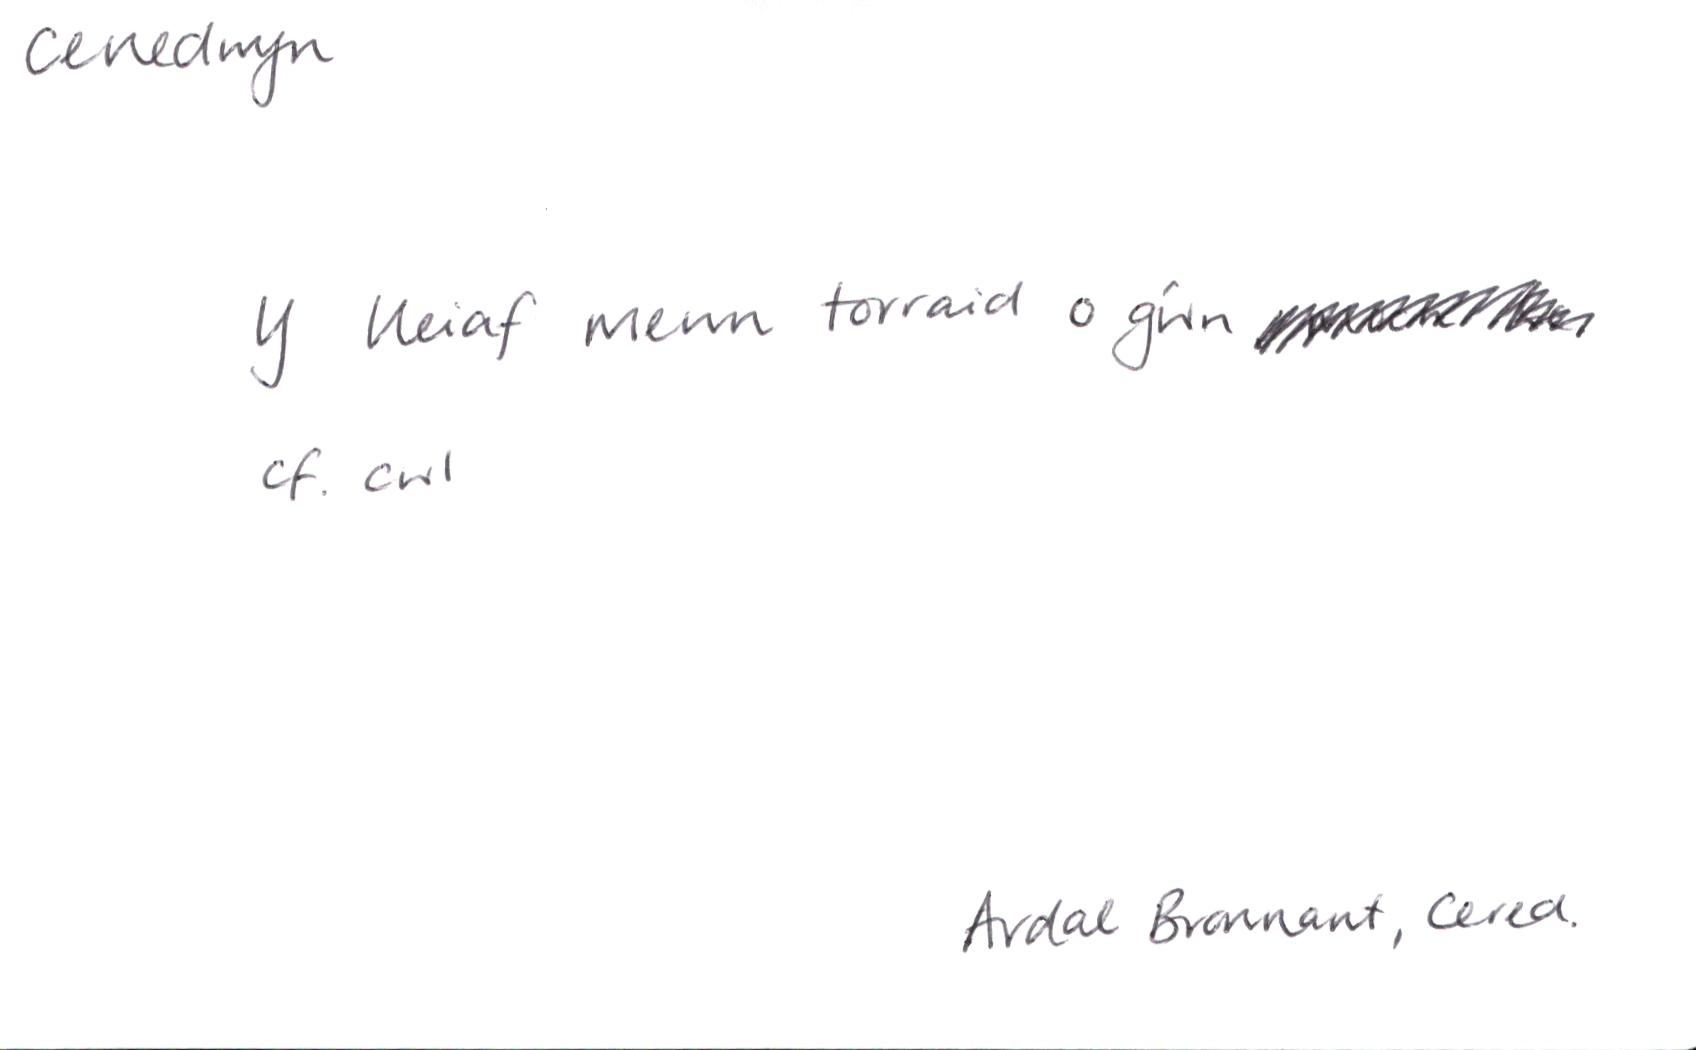 cenedwyn
y lleiaf mewn torraid o gŵn
cf. cwl
Ardal Bronnant, Cered.